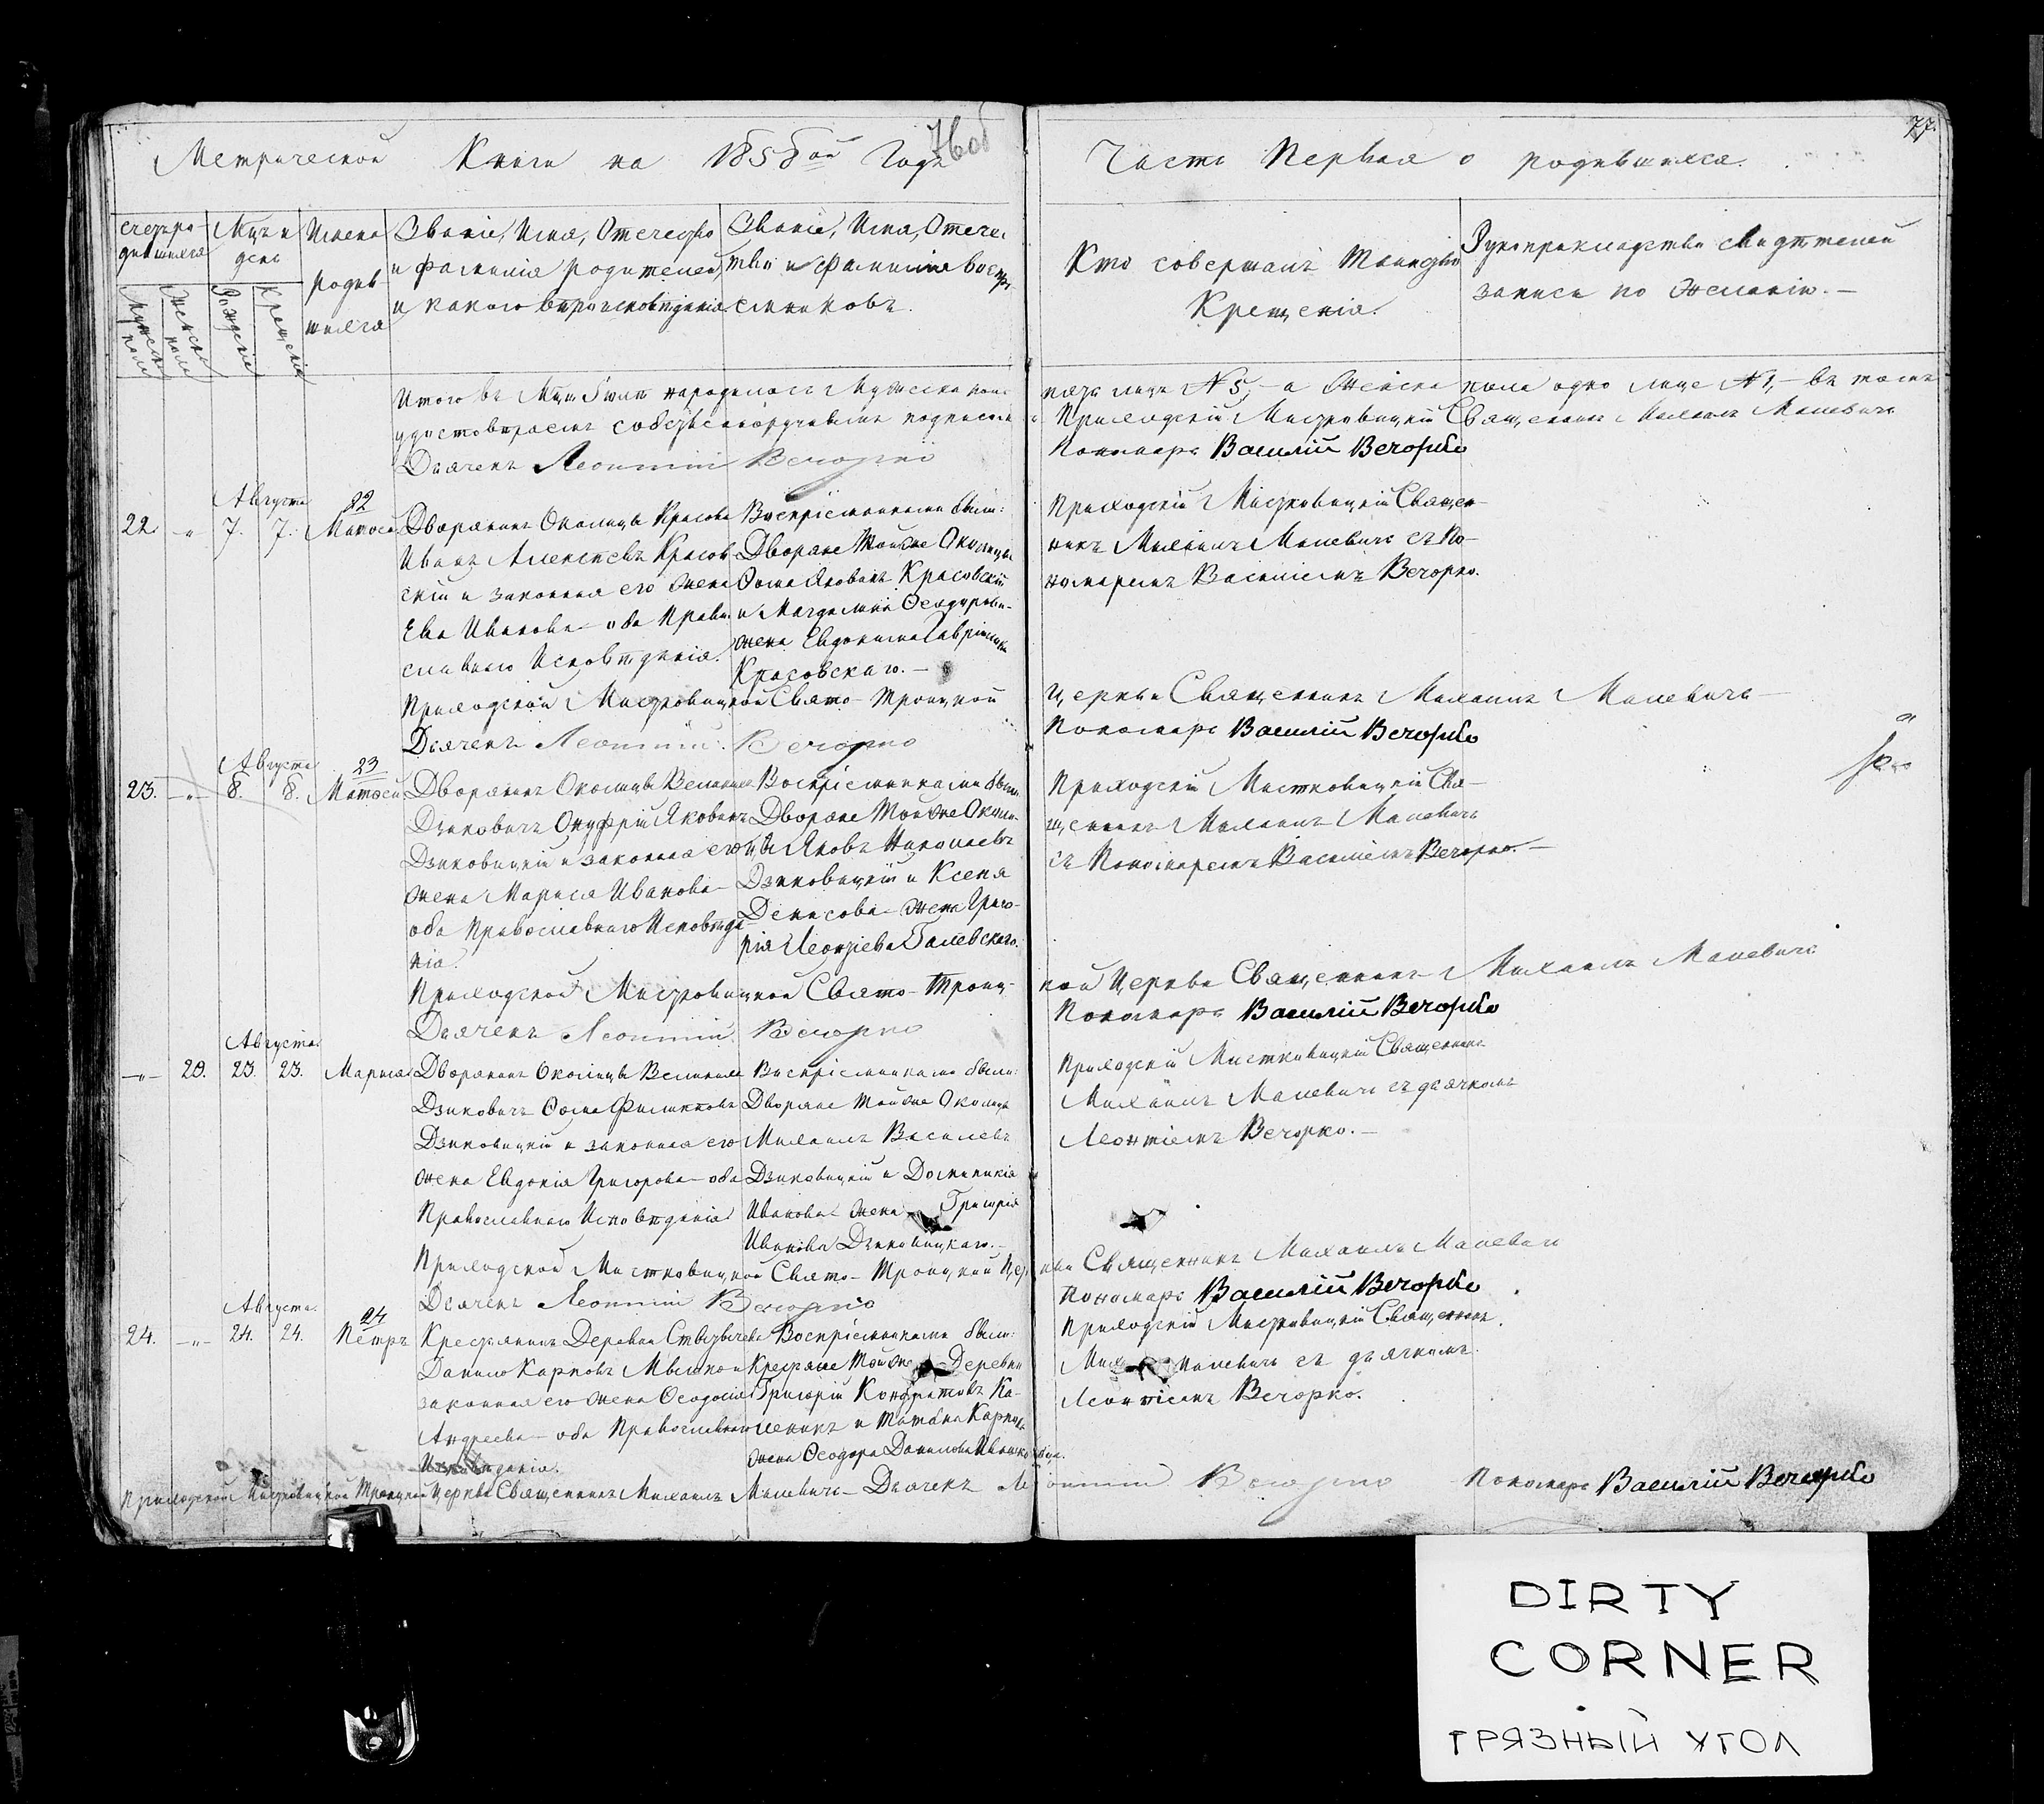 76об
77.
Метрической Книги на 1858ой Годъ
Часть Первая о родившихся.
Счетъ ро-
дившихся
Мужеска
пола
Женска
пола
Мцъ и
день
Рожденія
Крещенія
Имена
родив-
шихся
Званіе, Имя, Отечество
и Фамилія родителей,
и какого вѣроисповѣданія
Званіе, Имя, Отече-
тво и Фамилія воспрі-
емниковъ.
Кто совершалъ Таинство
Крещенія.
Рукоприкладство свидѣтелей
записи по Желанію.—
Итого въ Мцѣ Іюлѣ народилось Мужеска пола
пять лицъ №5,— а Женска пола одно лице №1,— въ томъ
удостовѣряемъ собственоручнымъ подписомъ
Приходскій Мистковицкій Священникъ Михаилъ Малевичъ
Дьячекъ Леонтій Вечорко
Пономарь Василій Вечорко
Августа
22
22 „ 7. 7. Матөей
Дворянинъ Околицы Красова
Иванъ Алексѣевъ Красов
скій и законная его жена
Ева Иванова— оба Право
славнаго Исповѣданія.
Воспріемниками были:
Дворяне Тойже Околицы
Өома Яковъ Красовскій
и Магдалина Өеодорова—
жена Евдокима Гаврілова
Красовскаго.—
Приходскій Мистковицкій Священ-
никъ Михаилъ Малевичъ съ По-
номаремъ Василіемъ Вечорко.
Приходской Мистковицкой Свято-Троицкой
Церкви Священникъ Михаилъ Малевичъ
Дьячекъ Леонтій Вечорко
Пономарь Василій Вечорко
Августа
23
23. „ 8. 8. Матөей
Дворянинъ Околицы Великихъ
Дзиковичъ Онуфрій Яковъ
Дзиковицкій и законная его
жена Марися Иванова—
оба Православнаго Исповѣда-
нія.
Воспріемниками были:
Дворяне Тойже Околи-
цы Яковъ Николаевъ
Дзиковицкій и Ксеня
Денисова— жена Григо-
рія Леонтіева Галевскаго.
Приходскій Мистковицкій Свя-
щенникъ Михаилъ Малевичъ
съ Пономаремъ Василіемъ Вечорко.—
Приходской Мистковицкой Свято-Троиц-
кой Церкви Священникъ Михаилъ Малевичъ
Дьячекъ Леонтій Вечорко
Пономарь Василій Вечорко
Августа
„ 23. 23. Марися
Дворянинъ Околицы Великихъ
Дзиковичъ Өома Филипповъ
Дзиковицкій и законная его
жена Евдокія Григорова— оба
Православнаго Исповѣданія
Воспріемниками были:
Дворяне Тойже Околицы
Михаилъ Василевъ
Дзиковицкій и Доминикія
Иванова жена Григорія
Иванова Дзиковицкаго.—
Приходскій Мистковицкій Священникъ
Михаилъ Малевичъ съ дьячкомъ
Леонтіемъ Вечорко.—
Приходской Мистковицкой Свято-Троицкой Цер
кви Священникъ Михаилъ Малевичъ
Дьячекъ Леонтій Вечорко
Пономарь Василій Вечорко
Августа
24
24. „ 24. 24. Петръ
Крестьянинъ Деревни
Данило Карповъ
законная его жена Өеодосія
Андреева— оба Православнаго
Исповѣданія.
Воспріемниками были:
Крестьяне Тойже Деревни
Григорій Кондратовъ Ка-
и Татьяна Карпова
жена Өеодора Данилова
Приходскій Мистковицкій Священникъ
Малевичъ съ дьячкомъ
Леонтіемъ Вечорко.
Приходской Мистковицкой Троицкой Церкви Священникъ Михаилъ Малевичъ— Дьячекъ Леонтій Вечорко Пономарь Василій Вечорко
DIRTY
CORNER
ГРЯЗНЫЙ УГОЛ